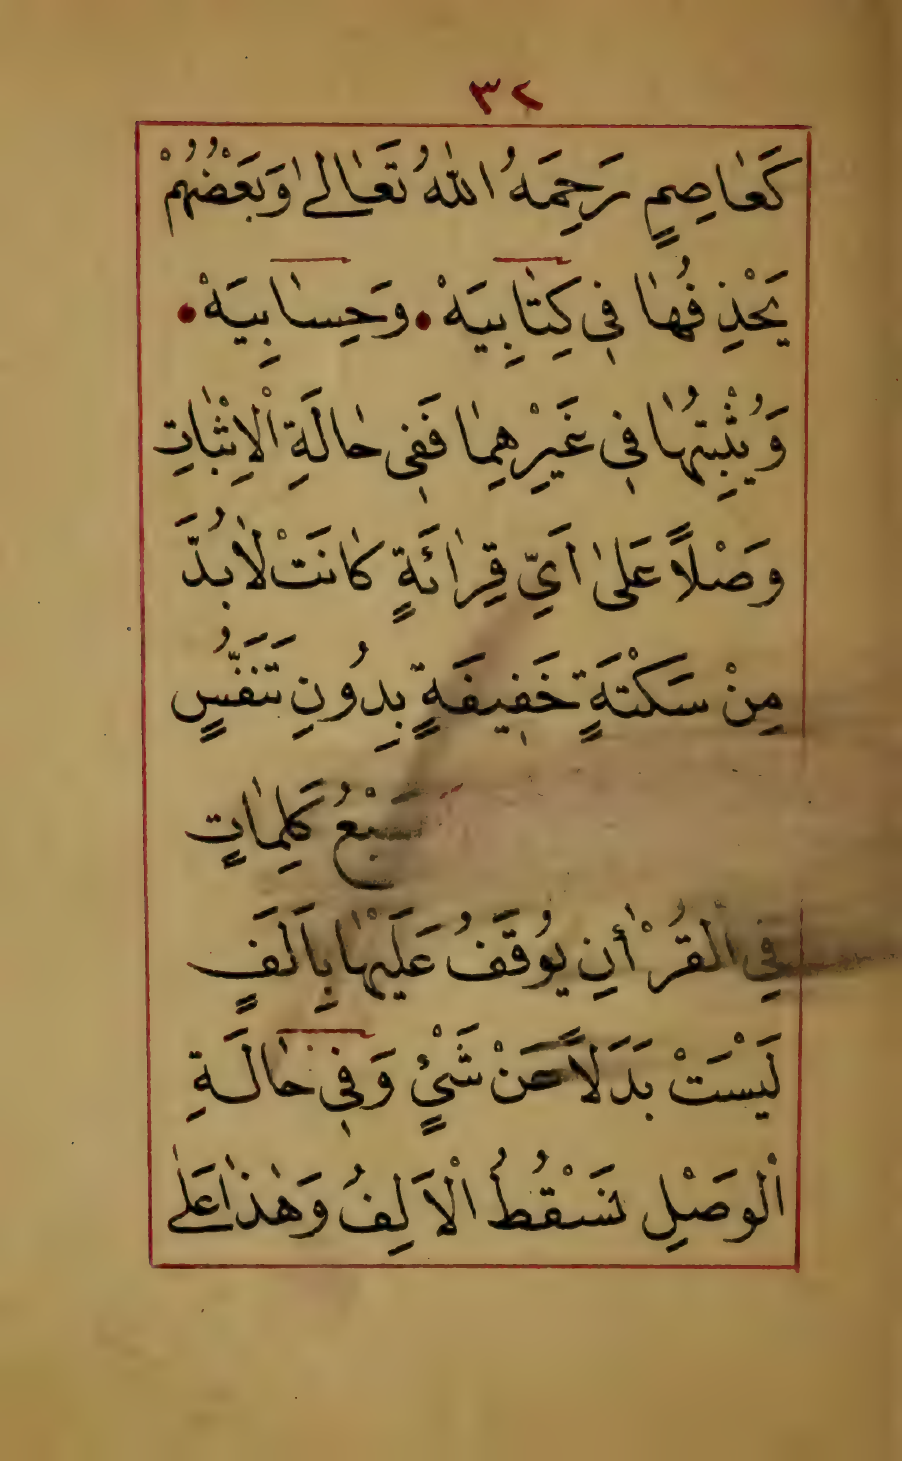 ٣٢
كَعٰاصِمٍ رَحِمَهُ اللّٰهُ تَعٰالىٰ وَبَعْضُهُمْ
يَحْذِفُهٰا فِي كِتٰابِيَهْ • وَحِسٰابِيَهْ •
وَيُثْبِتُهٰا فِي غَيْرِهِمٰا فَفِي حٰالَةِ الْاِثْبٰاتِ
وَصْلاً عَلىٰ اَيِّ قِرٰائَةٍ كٰانَتْ لاٰبُدَّ
مِنْ سَكْتَةٍ خَفِيفَةٍ بِدُونِ تَنَفُّسٍ
سَبْعُ كَلِمٰاتٍ
فِي الْقُرْأٰنِ يُوقَفُ عَلَيْهٰا بِاَلَفٍ
لَيْسَتْ بَدَلاً عَنْ شَيْئٍ وَفِي حٰالَةِ
الْوَصْلِ تَسْقُطُ الْاَلِفُ وَهٰذٰا عَلٰى